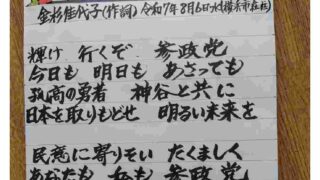 金杉佳代子(作詞)令和7年8月6日(水)(横浜市在住)
輝け 行くぞ 参政党
今日も 明日も あさっても
孤高の勇者 神谷と共に
日本を取りもどせ 明るい未来を
民意に寄りそい たくましく
あなたも 私も 参政党